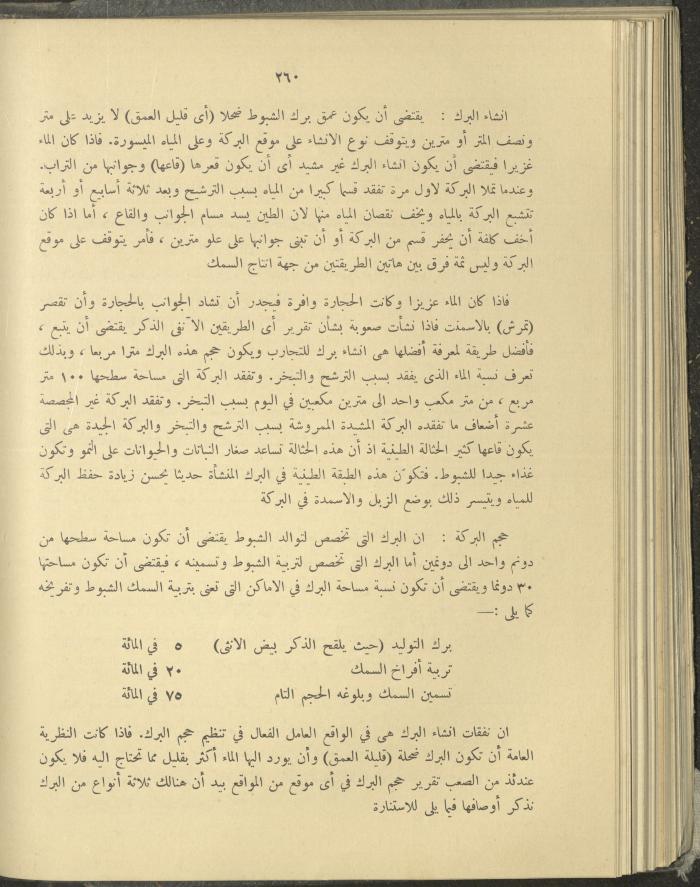 ٢٦٠
انشاء البرك : يقتضى أن يكون عمق برك الشبوط ضحلا (أى قليل العمق) لا يزيد على متر
ونصف المتر أو مترين ويتوقف نوع الانشاء على موقع البركة وعلى المياه الميسورة. فاذا كان الماء
غزيرا فيقتضى أن يكون انشاء البرك غير مشيد أى أن يكون قعرها (قاعها) وجوانبها من التراب.
وعندما تملا البركة لاول مرة تفقد قسما كبيرا من المياه بسبب الترشيح وبعد ثلاثة أسابيع أو أربعة
تتشبع البركة بالمياه ويخف نقصان المياه منها لان الطين يسد مسام الجوانب والقاع ، أما اذا كان
أخف كلفة أن يحفر قسم من البركة أو أن تبنى جوانبها على علو مترين ، فأمر يتوقف على موقع
البركة وليس ثمة فرق بين هاتين الطريقتين من جهة انتاج السمك
فاذا كان الماء عزيزا وكانت الحجارة وافرة فيجدر أن تشاد الجوانب بالحجارة وأن تقصر
(تمرش) بالاسمنت فاذا نشأت صعوبة بشأن تقرير أى الطريقين الآنفى الذكر يقتضى أن يتبع ،
فأفضل طريقة لمعرفة أفضلها هى انشاء برك للتجارب ويكون حجم هذه البرك مترا مربعا ، وبذلك
تعرف نسبة الماء الذى يفقد بسبب الترشح والتبخر. وتفقد البركة التى مساحة سطحها ١٠٠ متر
مربع ، من متر مكعب واحد الى مترين مكعبين في اليوم بسبب التبخر. وتفقد البركة غير المجصصة
عشرة أضعاف ما تفقده البركة المشيدة الممروشة بسبب الترشح والتبخر والبركة الجيدة هى التى
يكون قاعها كثير الحثالة الطينية اذ أن هذه الحثالة تساعد صغار النباتات والحيوانات على النمو وتكون
غذاء جيدا للشبوط. فتكوّن هذه الطبقة الطينية في البرك المنشأة حديثا يحسن زيادة حفظ البركة
للمياه ويتيسر ذلك بوضع الزبل والاسمدة في البركة
حجم البركة : ان البرك التى تخصص لتوالد الشبوط يقتضى أن تكون مساحة سطحها من
دونم واحد الى دونمين أما البرك التى تخصص لتربية الشبوط وتسمينه ، فيقتضى أن تكون مساحتها
٣٠ دونما ويقتضى أن تكون نسبة مساحة البرك في الاماكن التى تعنى بتربية السمك الشبوط وتفريخه
كما يلى :—
برك التوليد (حيث يلقح الذكر بيض الانثى) ٥ في المائة
تربية أفراخ السمك ٢٠ في المائة
تسمين السمك وبلوغه الحجم التام ٧٥ في المائة
ان نفقات انشاء البرك هى في الواقع العامل الفعال في تنظيم حجم البرك. فاذا كانت النظرية
العامة أن تكون البرك ضحلة (قليلة العمق) وأن يورد اليها الماء أكثر بقليل مما تحتاج اليه فلا يكون
عندئذ من الصعب تقرير حجم البرك في أى موقع من المواقع بيد أن هنالك ثلاثة أنواع من البرك
نذكر أوصافها فيما يلى للاستنارة